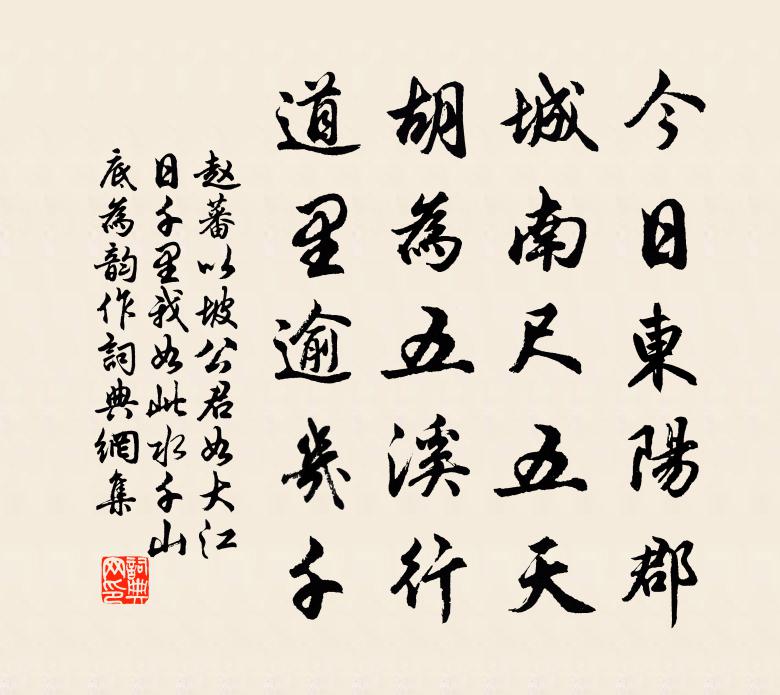 今日東陽郡
城南尺五天
胡為五溪行
道里逾幾千
赵蕃以坡公君如大江
日千里我如此水千山
底為韵作詞典網集
詞典网印